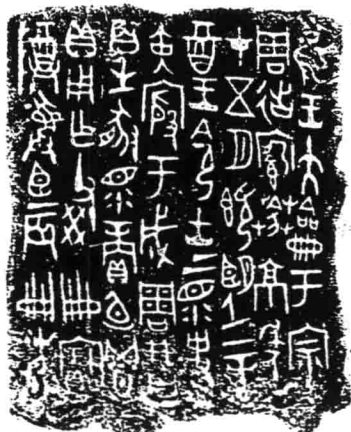 隹王大龠于宗
周𢓊京年
才五月既望辛
酉王令士上眔史
寅殷于成周
百生豚眔賞卣鬯
貝用乍父癸寶
尊彝臣辰冊